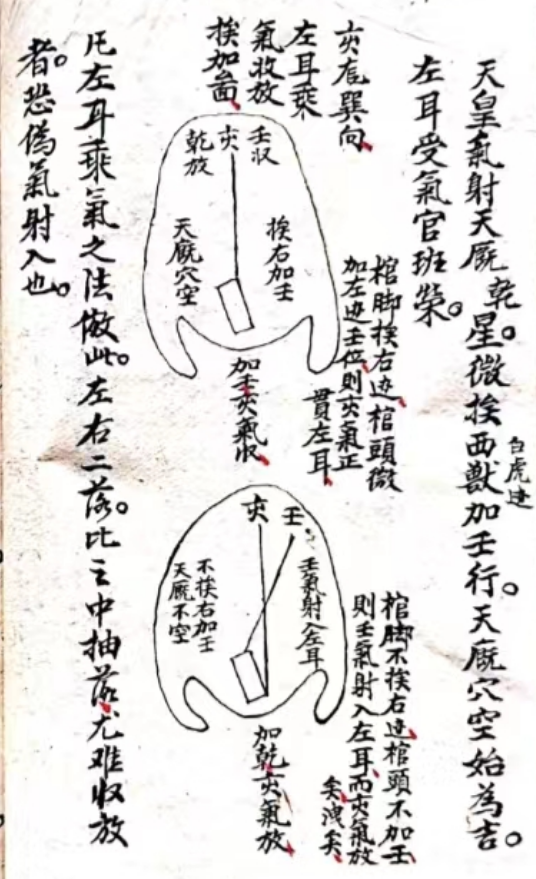 天皇氣射天厩乾。星微挨西獸加壬行。天廐穴空始為吉。
白虎邊
左耳受氣官班榮。
亥龍巽向
左耳乘
氣收放
挨加啚
壬収
亥
乾放
挨右加壬
天厩穴空
棺脚挨右边棺頭微
加左边壬位則亥氣正
貫左耳
加壬亥氣収
亥
壬
壬氣射入左耳
不挨右加壬
天厩不空
棺脚不挨右边棺頭不加壬
則壬氣射入左耳而亥氣放
矣洩矣
加乾亥氣放
凡左耳乘氣之法倣此。左右二落。比之中抽落尤难収放
者。恐偽氣射入也。